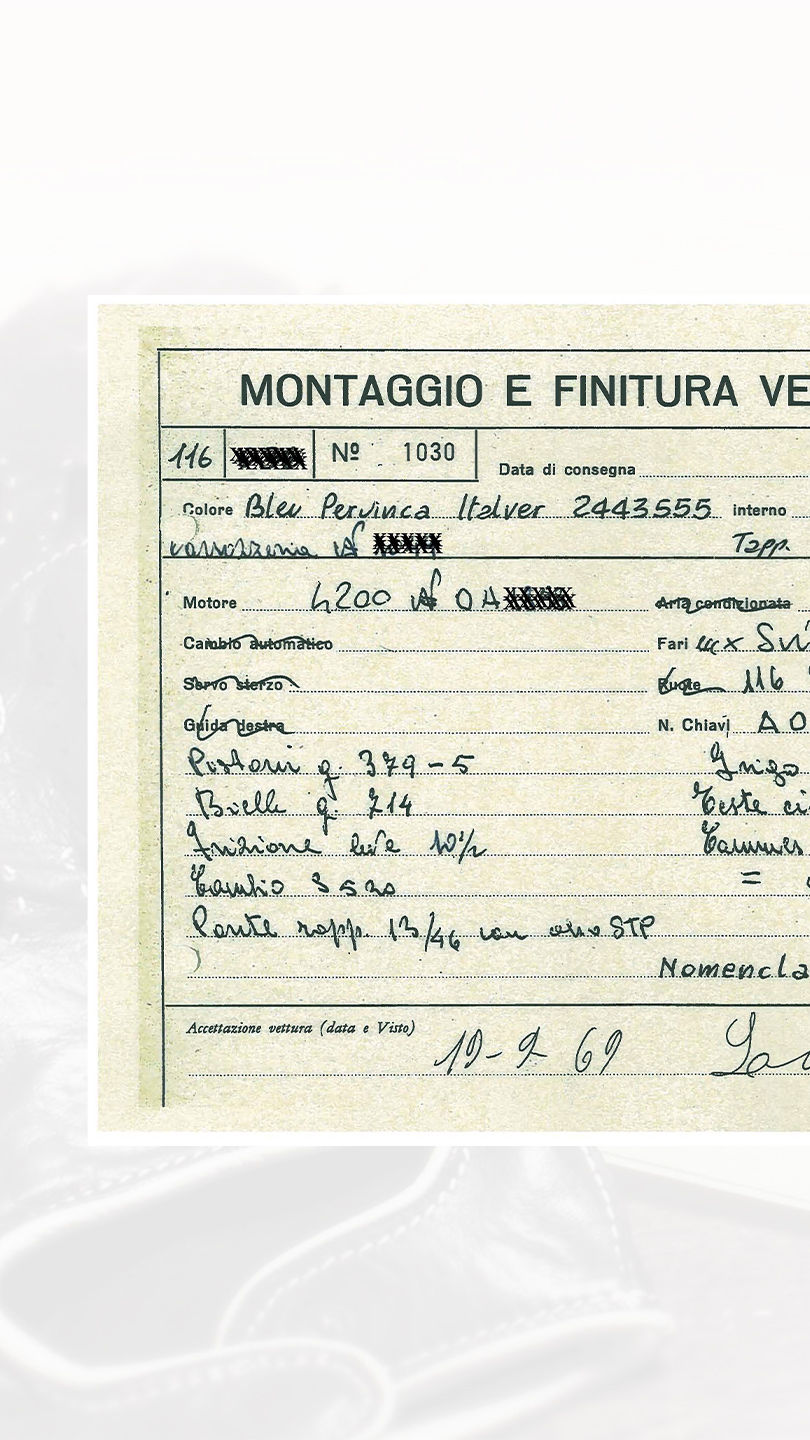 MONTAGGIO E FINITURA VE
116 Nº 1030
Data di consegna
Colore Bleu Pervinca Italver 2443555 interno
carrozzeria Nº Tapp.
Motore 4200 Nº 04 Aria condizionata
Cambio automatico Fari
Servo sterzo Ruote 116
Guida destra N. Chiavi A0
Pistoni g. 379-5
Bielle g. 714 Teste ci
Frizione 10½ Cammes
Cambio =
Ponte rapp. 13/46 con olio STP
Nomencla
Accettazione vettura (data e Visto)
19-9-69